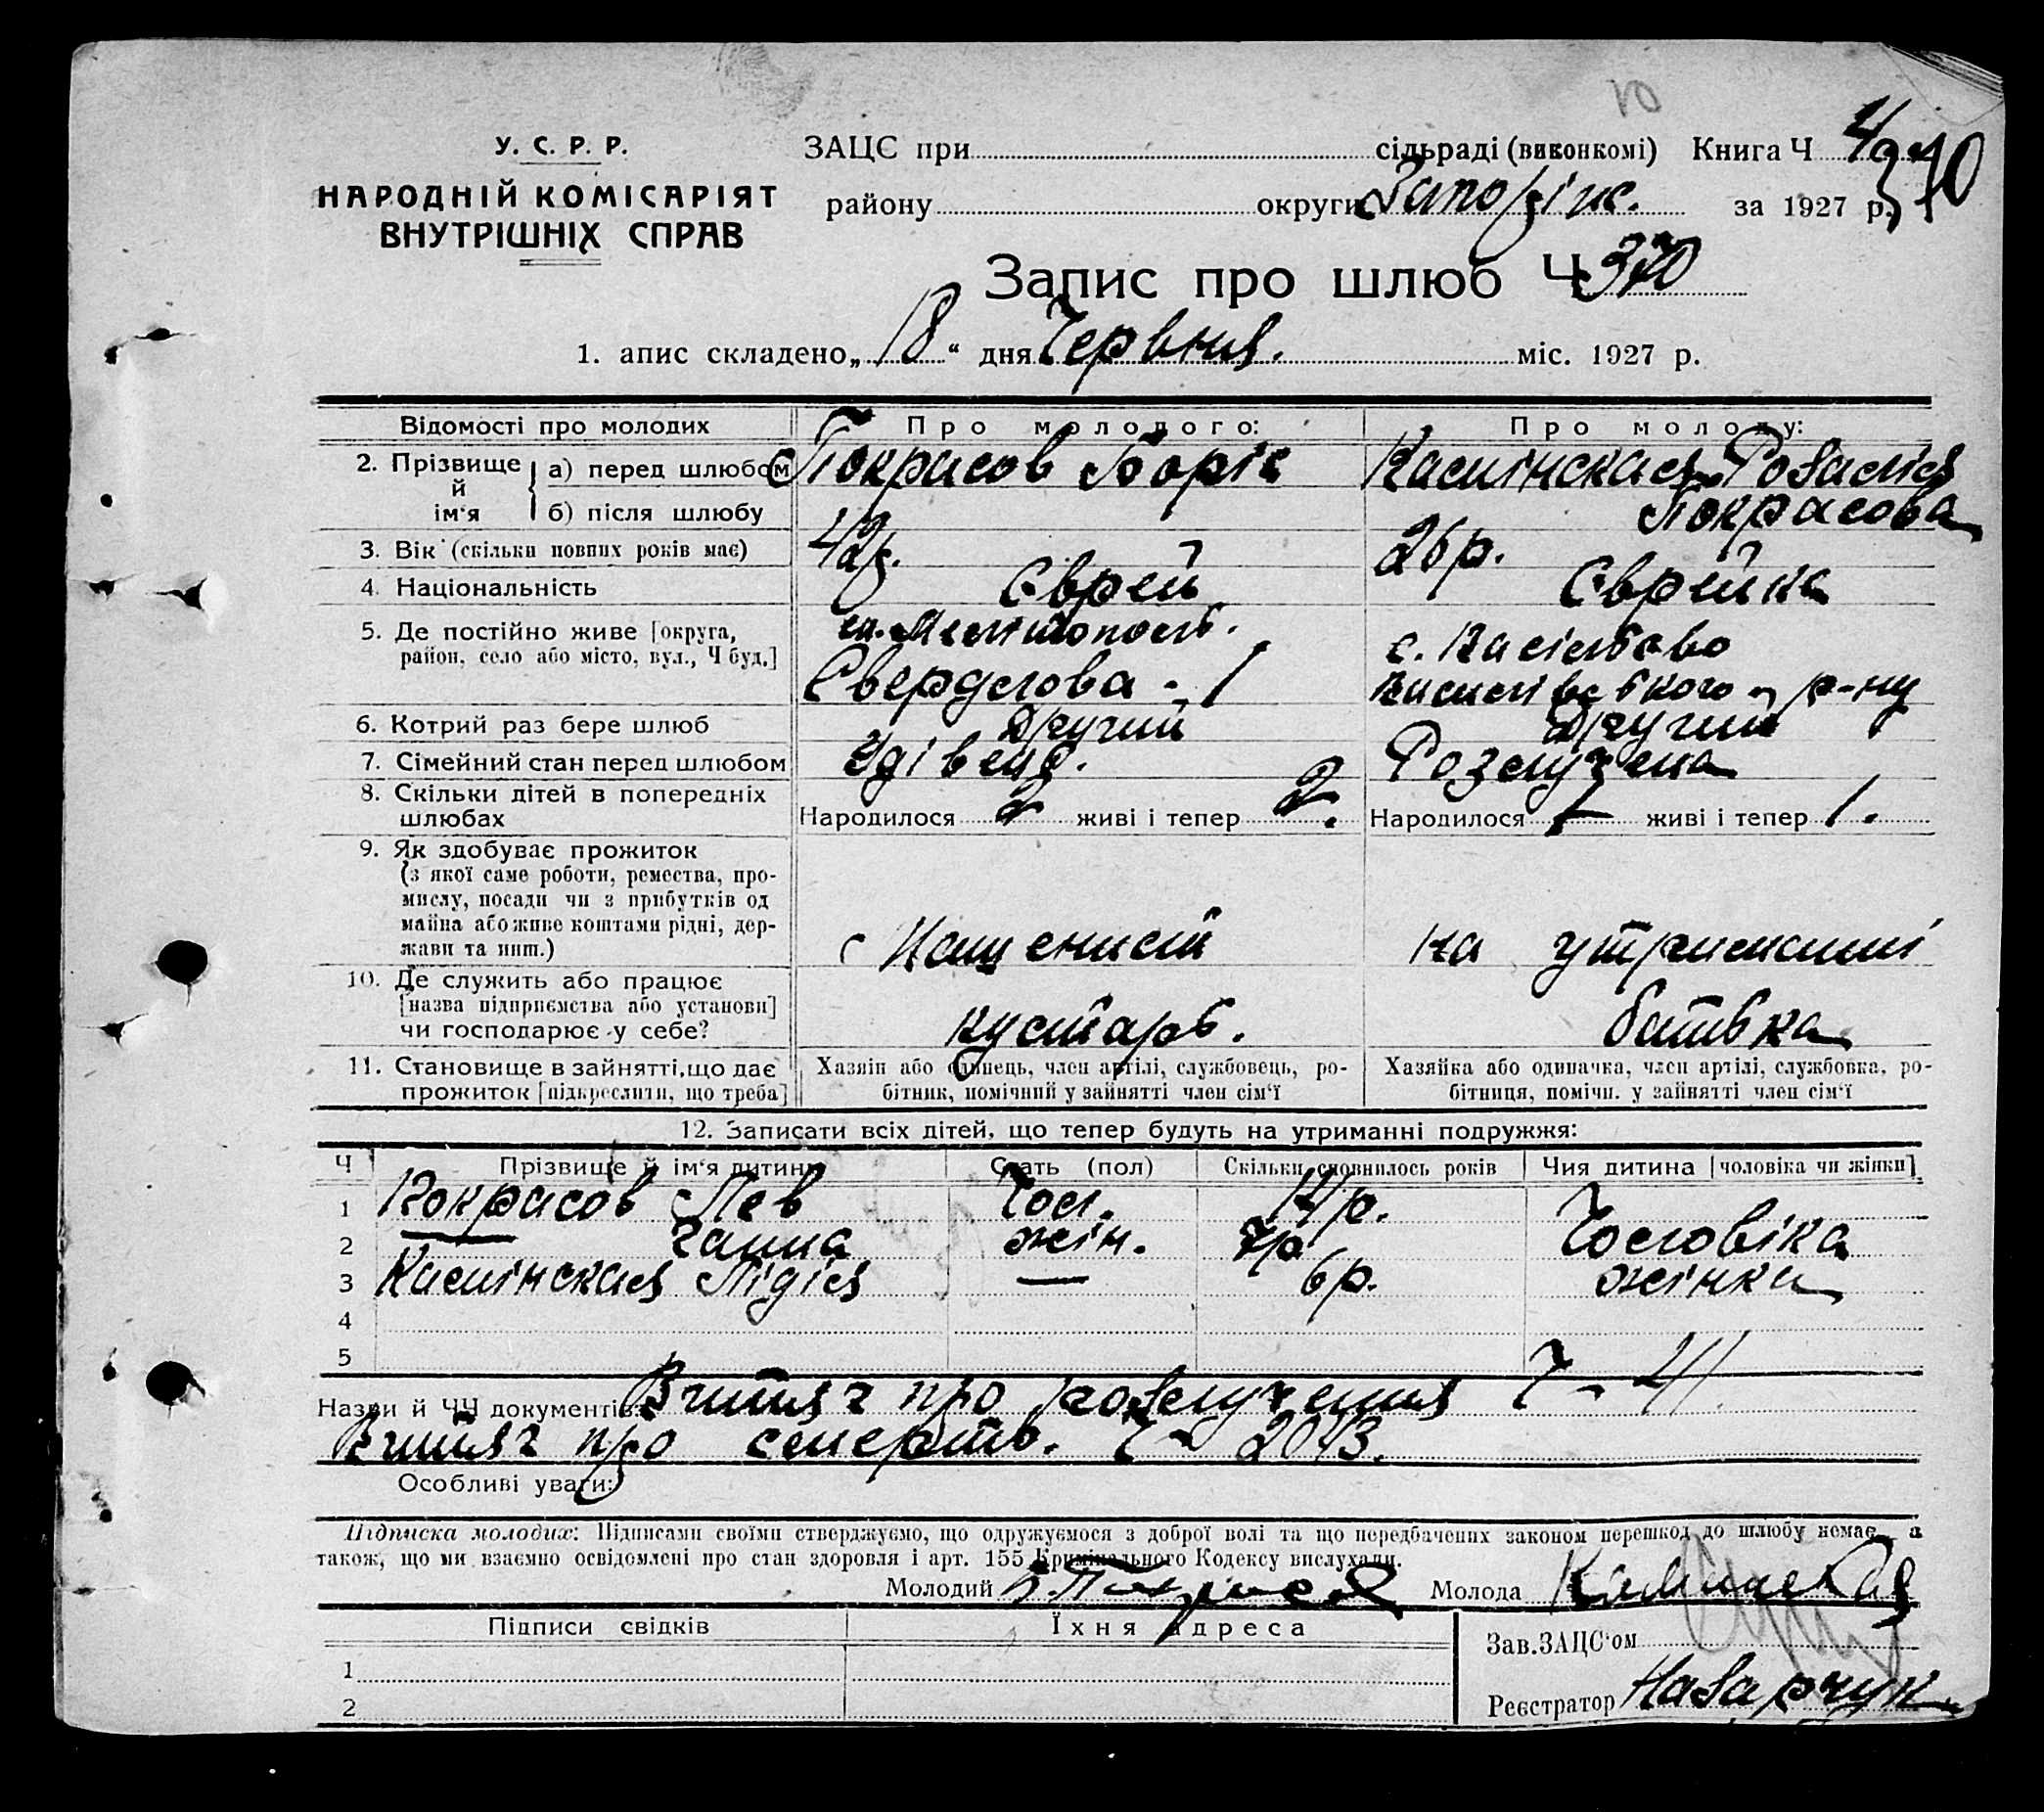 У. С. Р. Р.
НАРОДНІЙ КОМІСАРІЯТ
ВНУТРІШНІХ СПРАВ
ЗАЦС при сільраді (виконкомі) Книга Ч 4
району округи Запоріж. за 1927 р. 370
Запис про шлюб Ч 370
1. апис складено „18“ дня Червня. міс. 1927 р.
Відомості про молодих Про молодого: Про молоду:
2. Прізвище й ім‘я
а) перед шлюбом Покрасов Боріс Камінская Розалія
б) після шлюбу Покрасова
3. Вік (скільки повних років має) 42р. 26р.
4. Національність Єврей Єврейка
5. Де постійно живе [округа, район, село або місто, вул., Ч буд.]
м. Мелітополь.
Свердлова - 1
с.
р-ну
6. Котрий раз бере шлюб Другий Другий
7. Сімейний стан перед шлюбом Удівець. Розлучена
8. Скільки дітей в попередніх шлюбах
Народилося 2 живі і тепер 2. Народилося 1 живі і тепер 1.
9. Як здобуває прожиток
(з якої саме роботи, ремества, промислу, посади чи з прибутків од майна або живе коштами рідні, держави та инш.)
на утриманні
10. Де служить або працює
[назва підприємства або установи]
чи господарює у себе?
кустарь.
батька
11. Становище в зайнятті, що дає прожиток [підкреслити, що треба]
Хазяїн або одинець, член артілі, службовець, робітник, помічний у зайнятті член сім‘ї
Хазяйка або одиначка, член артілі, службовка, робітниця, помічн. у зайнятті член сім‘ї
12. Записати всіх дітей, що тепер будуть на утриманні подружжя:
Ч Прізвище й ім‘я дитини Стать (пол) Скільки сповнилось років Чия дитина [чоловіка чи жінки]
1 Покрасов Лев Чол. 14р.
2 — Ганна жін. 7р Чоловіка
3 Камінская Лідія — 6р. жінка
4
5
Назви й ЧЧ документів Витяг про розлучення Ч - 41
Витяг про смерть. Ч - 2043.
Особливі уваги:
Підписка молодих: Підписами своїми стверджуємо, що одружуємося з доброї волі та що передбачених законом перешкод до шлюбу немає, а
також, що ми взаємно освідомлені про стан здоровля і арт. 155 Кримінального Кодексу вислухали.
Молодий Молода Каминская
Підписи свідків Їхня адреса
Зав. ЗАЦС‘ом
1
Реєстратор Назарчук
2